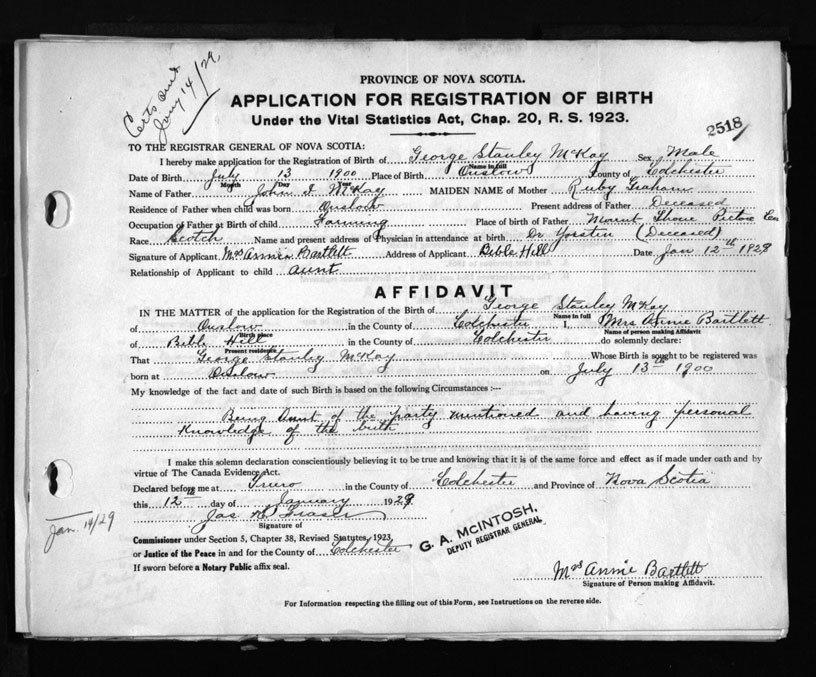 Certs out
Jany 14/29
PROVINCE OF NOVA SCOTIA.
APPLICATION FOR REGISTRATION OF BIRTH
Under the Vital Statistics Act, Chap. 20, R. S. 1923.
2518
TO THE REGISTRAR GENERAL OF NOVA SCOTIA:
I hereby make application for the Registration of Birth of George Stanley McKay Sex Male
Name in full
Date of Birth July 13 1900 Place of Birth Onslow County of Colchester
Month Day Year
Name of Father John I McKay MAIDEN NAME of Mother Ruby Graham
Residence of Father when child was born Onslow Present address of Father Deceased
Occupation of Father at Birth of child Farming Place of birth of Father Mount Thom Pictou Co
Race Scotch Name and present address of Physician in attendance at birth Dr Yorston (Deceased)
Signature of Applicant Mrs Annie Bartlett Address of Applicant Bible Hill Date Jan 12th 1929
Relationship of Applicant to child aunt
AFFIDAVIT
IN THE MATTER of the application for the Registration of the Birth of George Stanley McKay
Name in full
of Onslow in the County of Colchester I, Mrs Annie Bartlett
Birth place Name of person making Affidavit
of Bible Hill in the County of Colchester do solemnly declare:
Present residence
That George Stanley McKay Whose Birth is sought to be registered was
born at Onslow on July 13th 1900
My knowledge of the fact and date of such Birth is based on the following Circumstances :—
Being Aunt of the party mentioned and having personal
Knowledge of the birth
I make this solemn declaration conscientiously believing it to be true and knowing that it is of the same force and effect as if made under oath and by
virtue of The Canada Evidence Act.
Declared before me at Truro in the County of Colchester and Province of Nova Scotia
this 12th day of January 1929.
Jas Fraser
Signature of
Jan. 14/29
Commissioner under Section 5, Chapter 38, Revised Statutes, 1923
or Justice of the Peace in and for the County of Colchester
If sworn before a Notary Public affix seal.
G. A. McINTOSH,
DEPUTY REGISTRAR GENERAL
Mrs Annie Bartlett
Signature of Person making Affidavit.
For Information respecting the filling out of this Form, see Instructions on the reverse side.